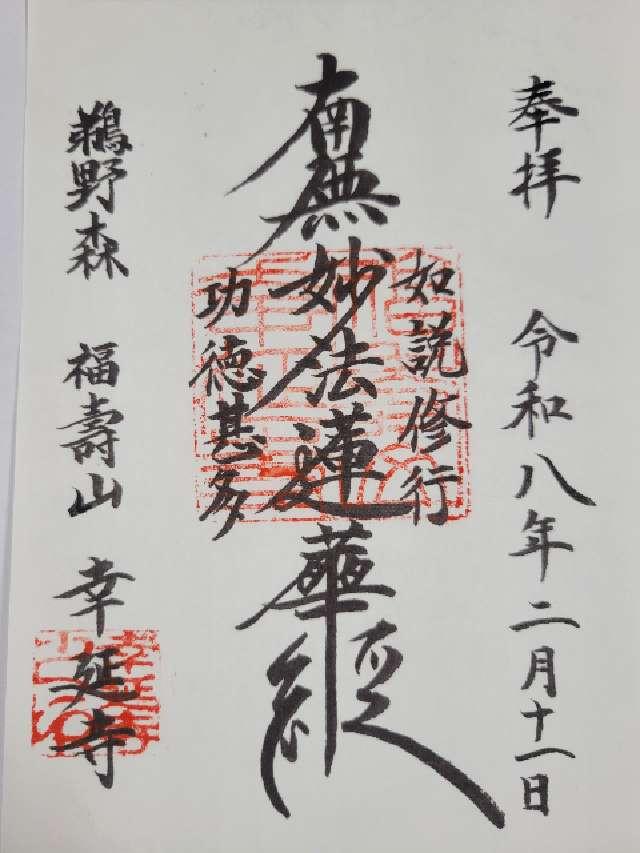 奉拝 令和八年二月十一日
如説修行
南無妙法蓮華経
功徳甚多
鵜野森 福壽山 幸延寺